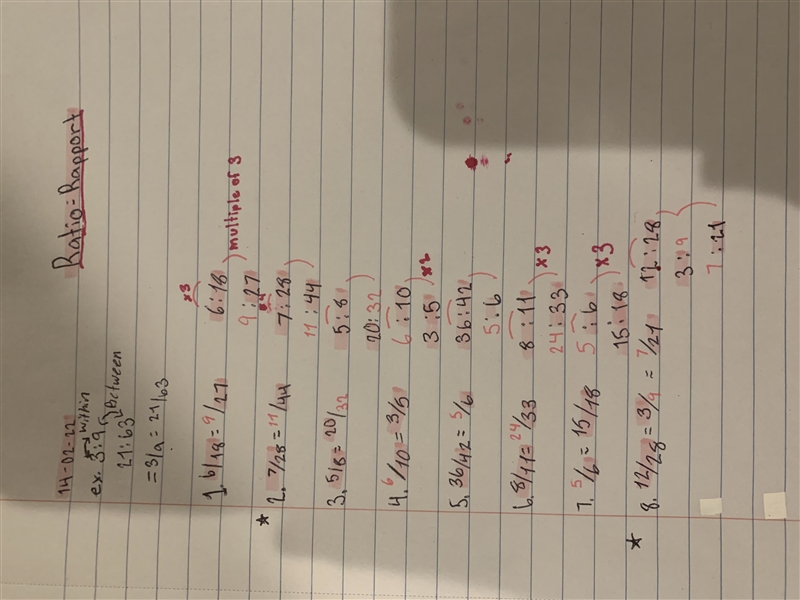 14-02-22 Ratio=Rapport
ex. 3:9 within
21:63 between
=3/9 = 21/63
x3
1. 6/18 = 9/27 6:18 multiple of 3
9:27
x4
★ 2. 7/28 = 11/44 7:28
11:44
3. 5/8 = 20/32 5:8
20:32
4. 6/10 = 3/5 6:10
3:5 x2
5. 36/42 = 5/6 36:42
5:6
6. 8/11 = 24/33 8:11 x3
24:33
7. 5/6 = 15/18 5:6 x3
15:18
★ 8. 12/28 = 3/9 = 7/21 12:28
3:9
7:21